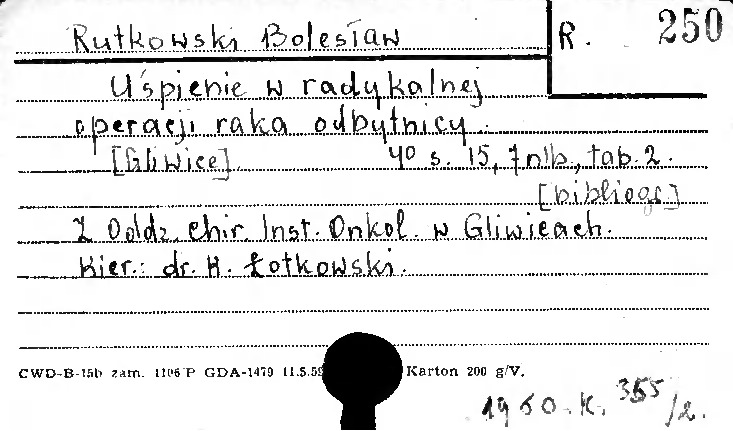 Rutkowski Bolesław R. 250
Uśpienie w radykalnej
operacji raka odbytnicy.
[Gliwice] 4° s. 15, 7 nlb., tab. 2.
[bibliogr]
Z Oddz. Chir. Inst. Onkol. w Gliwicach.
Kier.: dr. H. Łotkowski.
CWD-B-15b zam. 1106 P GDA-1479 11.5.59 Karton 200 g/V.
1960. K. 355/2.